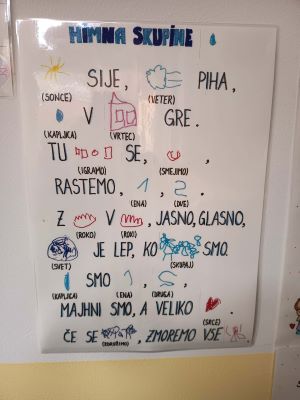 HIMNA SKUPINE
SIJE, PIHA,
(SONCE) (VETER)
V GRE.
(KAPLJICA) (VRTEC)
TU SE, ,
(IGRAMO) (SMEJIMO)
RASTEMO, 1, 2.
(ENA) (DVE)
Z V , JASNO, GLASNO,
(ROKO) (ROKI)
JE LEP, KO SMO.
(SVET) (SKUPAJ)
SMO 1, 2,
(KAPLJICA) (ENA) (DRUGA)
MAJHNI SMO, A VELIKO .
(SRCE)
ČE SE , ZMOREMO VSE
(ZDRUŽIMO)